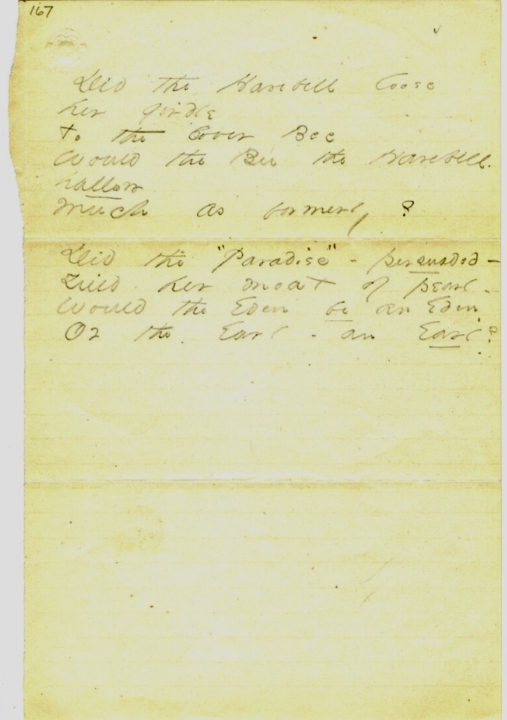 167
Did the Harebell loose
her girdle
to the lover Bee
Would the Bee the Harebell
hallow
Much as formerly?
Did the "Paradise" - persuaded -
Yield her moat of pearl -
Would the Eden be an Eden,
Or the Earl - an Earl?